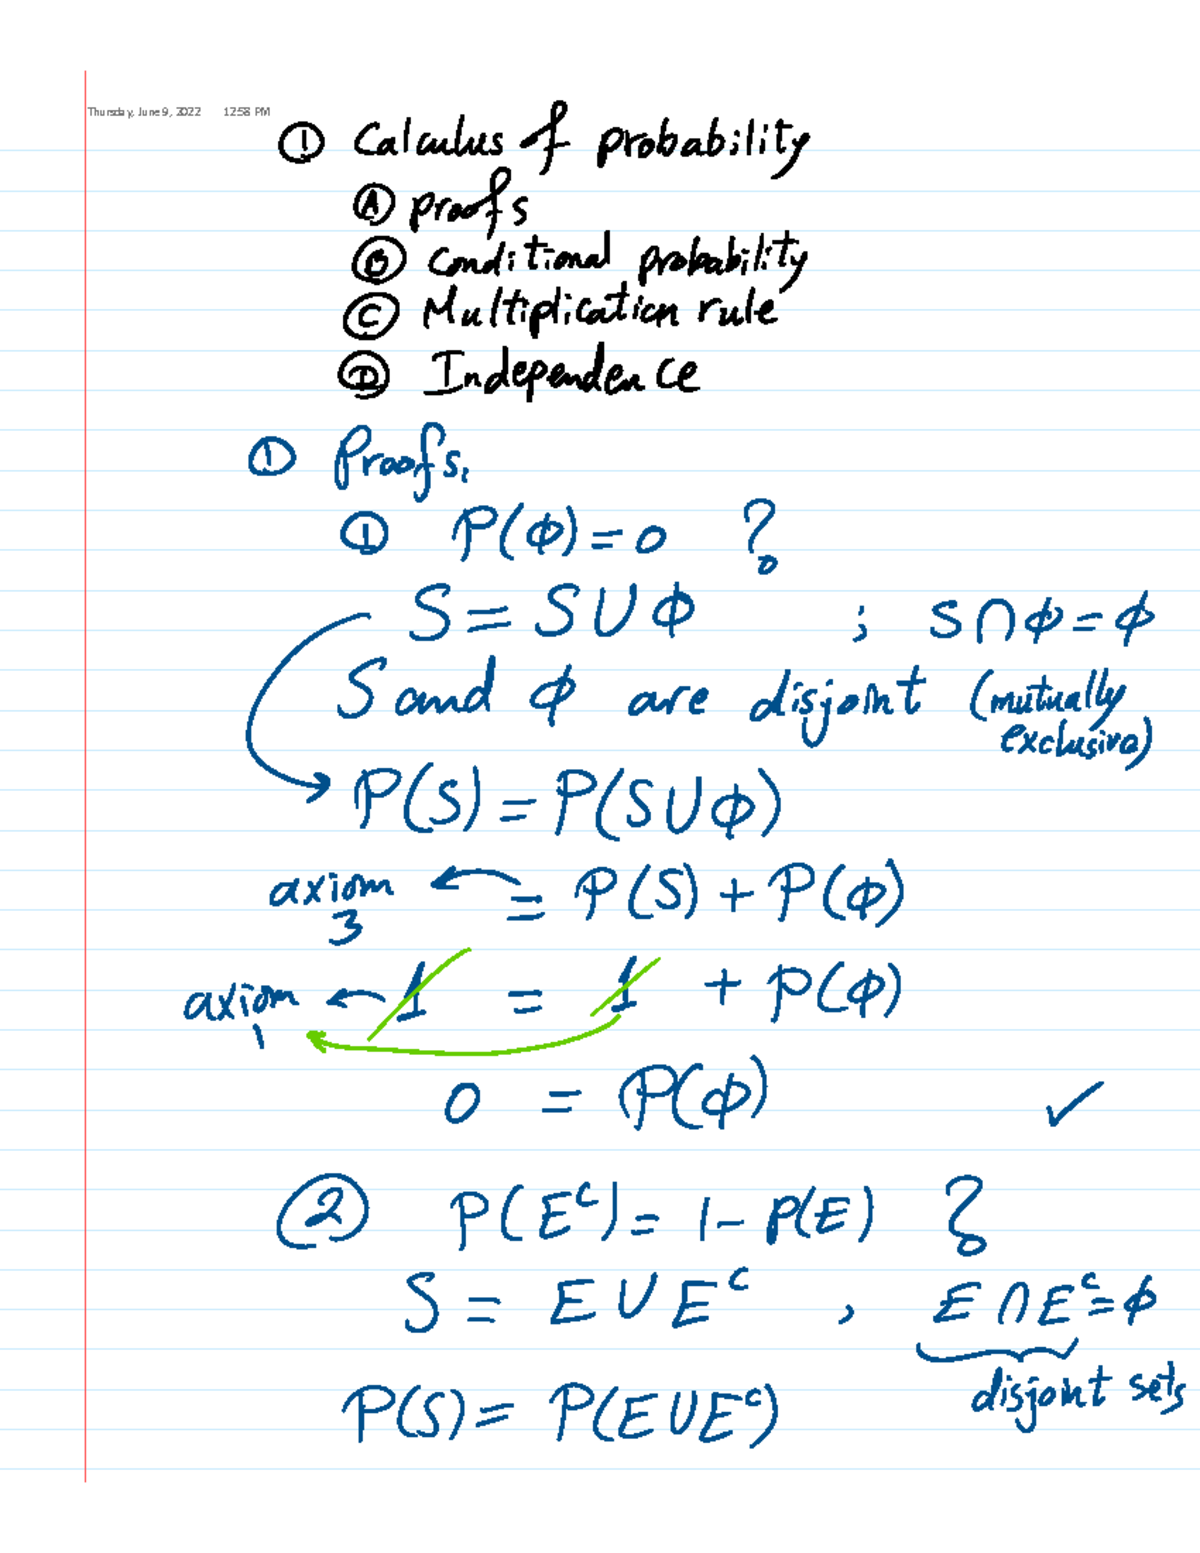 Thursday, June 9, 2022 12:58 PM
① Calculus of probability
Ⓐ proofs
Ⓑ Conditional probability
Ⓒ Multiplication rule
Ⓓ Independence
① Proofs.
① P(ϕ) = 0 ?
S = S ∪ ϕ ; S ∩ ϕ = ϕ
S and ϕ are disjoint (mutually
exclusive)
P(S) = P(S ∪ ϕ)
axiom ← = P(S) + P(ϕ)
3
axiom ← 1 = 1 + P(ϕ)
1
0 = P(ϕ) ✓
② P(Eᶜ) = 1 - P(E) ?
S = E ∪ Eᶜ , E ∩ Eᶜ = ϕ
disjoint sets
P(S) = P(E ∪ Eᶜ)